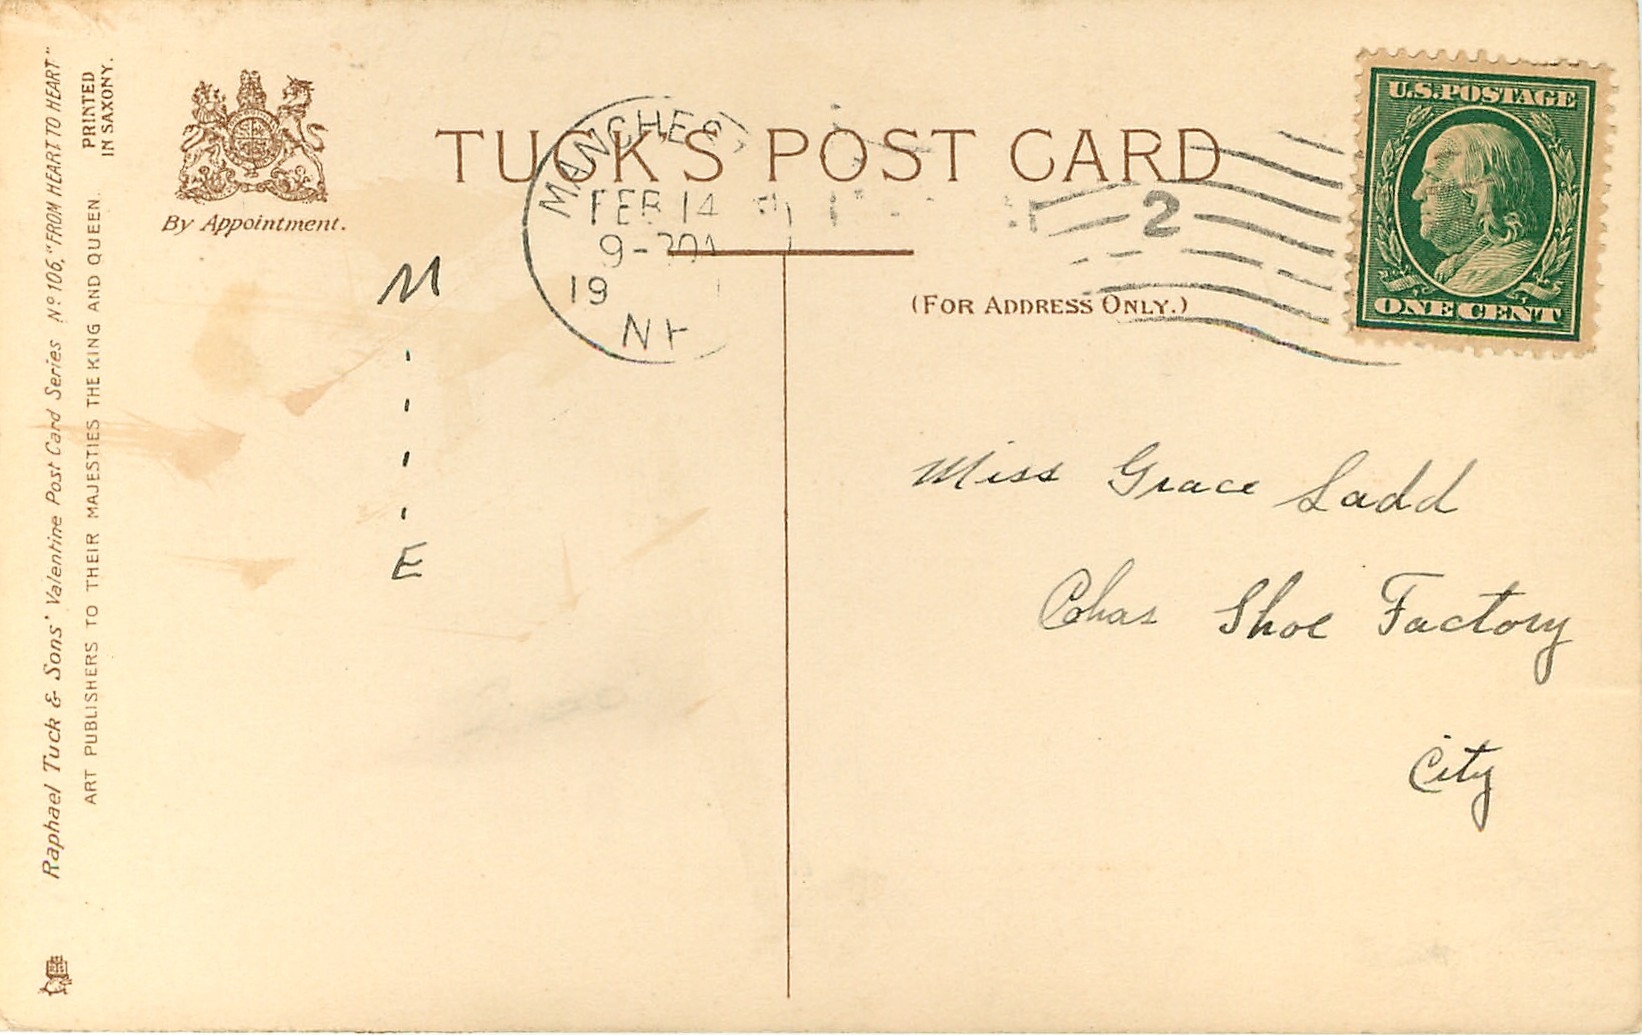 Raphael Tuck & Sons' Valentine Post Card Series Nº 106, "FROM HEART TO HEART"
ART PUBLISHERS TO THEIR MAJESTIES THE KING AND QUEEN.
PRINTED
IN SAXONY.
By Appointment.
TUCK'S POST CARD
MANCHEST
FEB 14
9-30A
19
NH
2
U.S. POSTAGE
ONE CENT
(FOR ADDRESS ONLY.)
M
E
Miss Grace Ladd
Cohas Shoe Factory
City